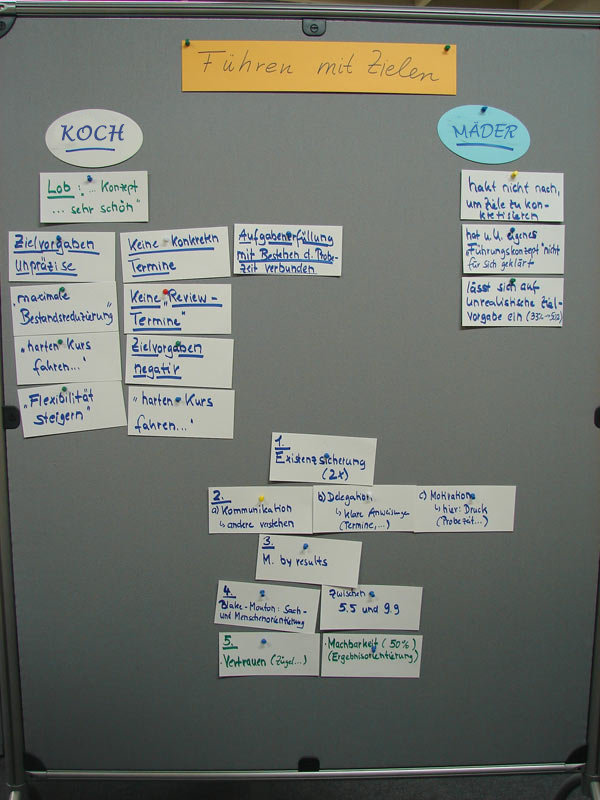 Führen mit Zielen
KOCH
Lob: "... Konzept
... sehr schön"
Zielvorgaben
unpräzise
"maximale
Bestandsreduzierung"
"harten Kurs
fahren..."
"Flexibilität
steigern"
Keine Konkreten
Termine
Keine "Review-
Termine"
Zielvorgaben
negativ
"harten Kurs
fahren..."
Aufgabenerfüllung
mit Bestehen d. Probe-
zeit verbunden
MÄDER
hakt nicht nach,
um Ziele zu kon-
kretisieren
hat u.U. eigenes
"Führungskonzept" nicht
für sich geklärt
lässt sich auf
unrealistische Ziel-
vorgabe ein
1.
Existenzsicherung
(2x)
2.
a) Kommunikation
↳ andere verstehen
b) Delegation
↳ klare Anweisungen
(Termine,...)
c) Motivation
↳ hier: Druck
(Probezeit...)
3.
M. by results
4.
Blake-Mouton: Sach-
und Menschenorientierung
Zwischen
5.5 und 9.9
5.
· Vertrauen (Zügel...)
· Machbarkeit (50%)
(Ergebnisorientierung)